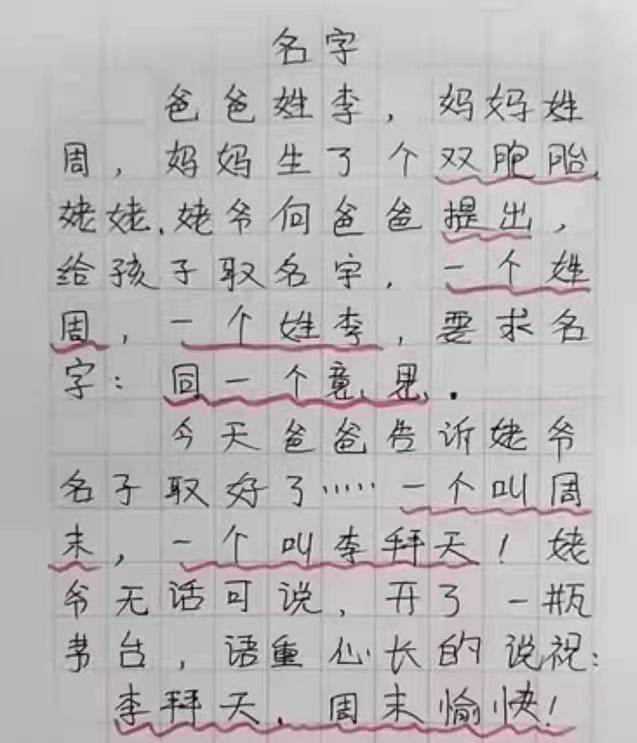 名字
爸爸姓李，妈妈姓
周，妈妈生了个双胞胎，
姥姥、姥爷向爸爸提出，
给孩子取名字，一个姓
周，一个姓李，要求名
字：同一个意思．
今天爸爸告诉姥爷
名子取好了……一个叫周
末，一个叫李拜天！姥
爷无话可说，开了一瓶
茅台，语重心长的说祝：
李拜天、周末愉快！